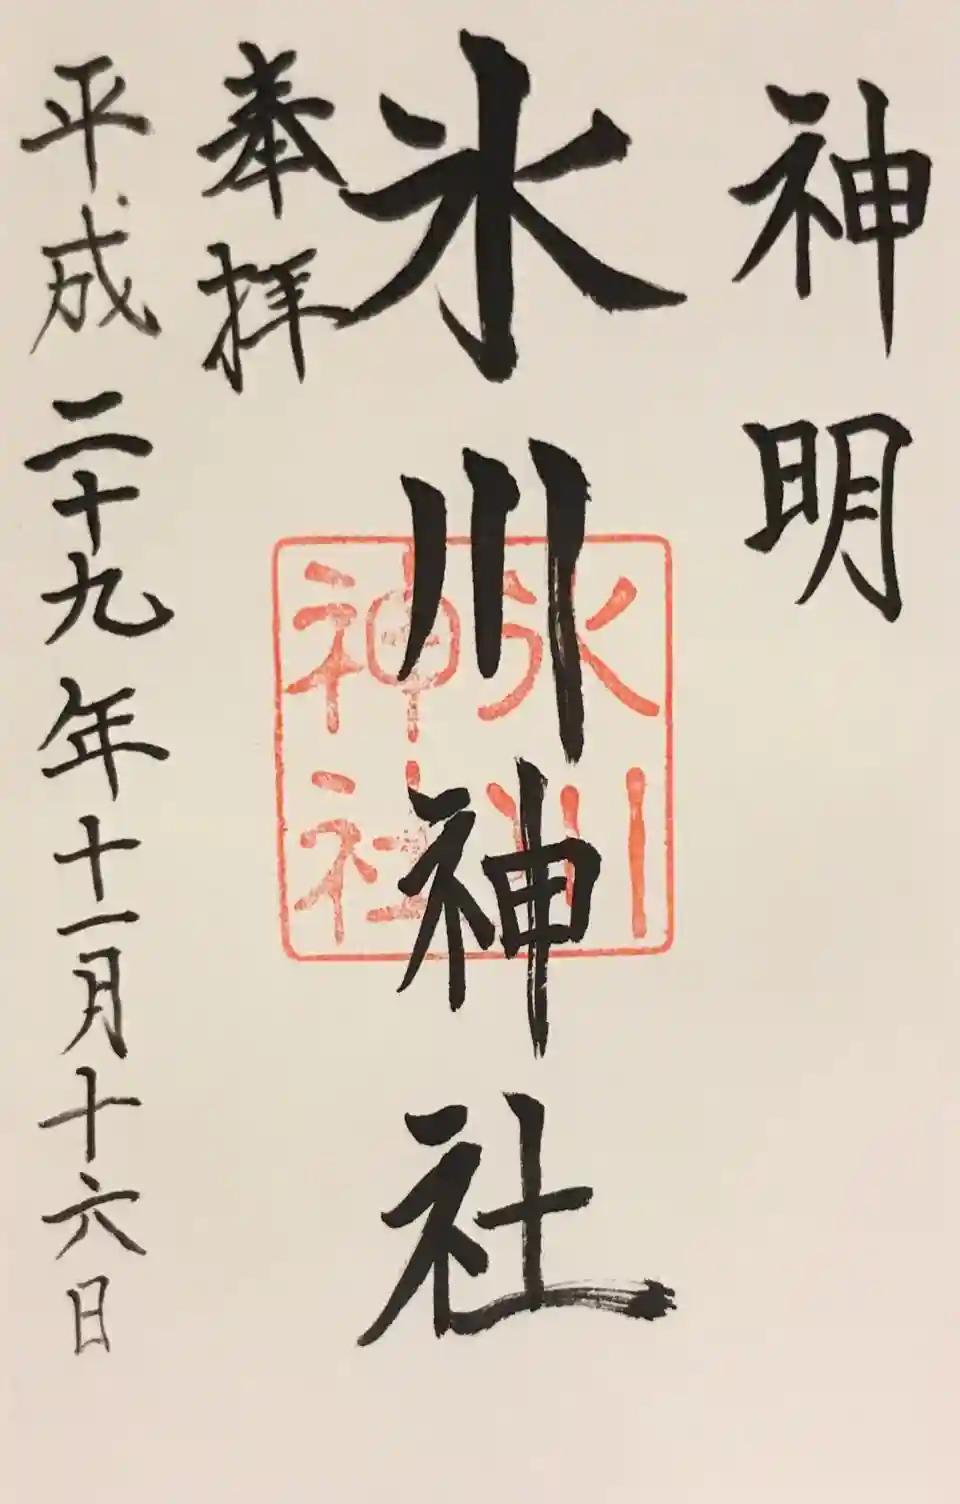 神明
氷川神社
氷川
神社
奉拝
平成二十九年十一月十六日